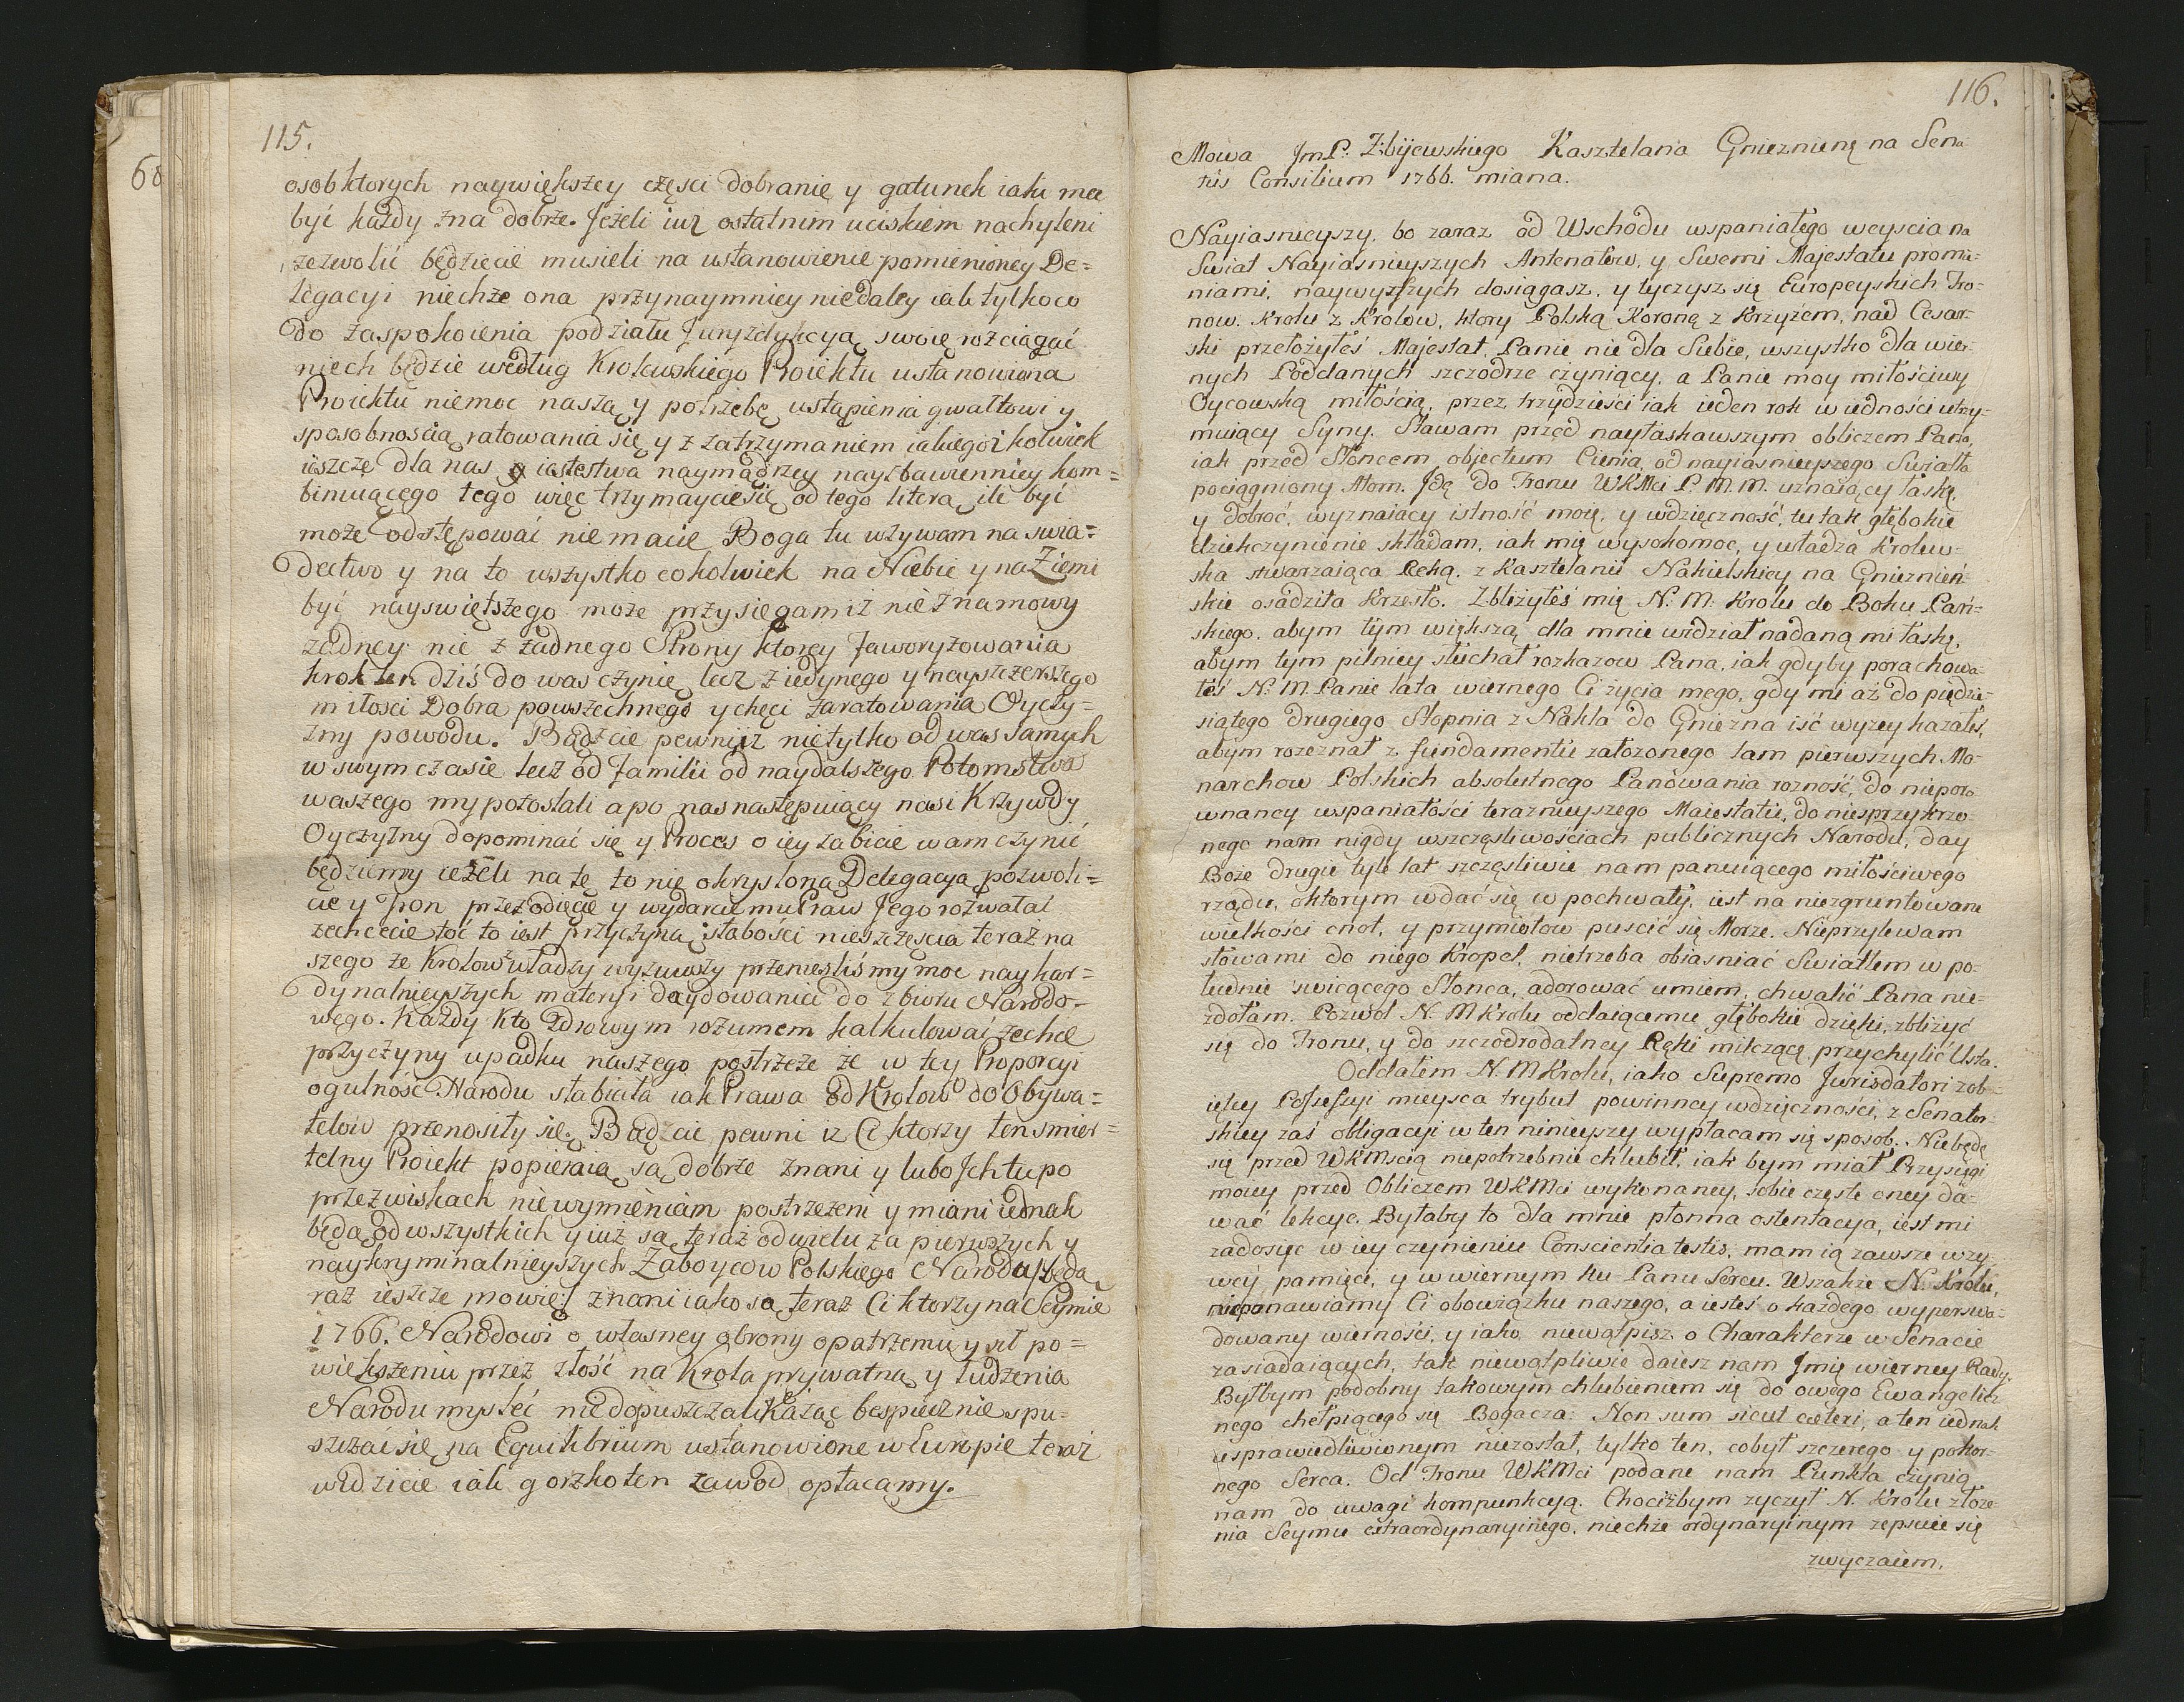 115.
osob ktorych naywiększey częsci dobranie y gatunek iaki ma
być każdy zna dobrze. Jeżeli iuż ostatnim uciskiem nachyleni
zezwolić będziecie musieli na ustanowienie pomienioney De=
legacyi niechże ona przynaymniey niedaley iak tylko co
do zaspokoienia podziału Juryzdykcyą swoię rozciągać
niech będzie według Krolewskiego Proiektu ustanowiona
Proiektu niemoc naszą y potrzebę ustąpienia gwałtowi y
sposobnoscią ratowania się y z zatrzymaniem iakiegoż kolwiek
ieszcze dla nas iestestwa naymądrzey nayzbawienniey kom=
binuiącego tego więc trzymaycie się od tego litera ile być
może odstępować nie macie Boga tu wzywam na swia=
dectwo y na to wszystko cokolwiek na Niebie y na Ziemi
być nayswiętszego może przysięgam iż nie z namowy
żadney nie z żadnego Strony ktorey Faworyzowania
krok ten dziś do was czynię lecz z iedynego y nayszczerszego
miłosci Dobra powszechnego y chęci zaratowania Oyczy=
zny powodu. Bądźcie pewni iż nietylko od was samych
w swym czasie lecz od Familii od naydalszego Potomstwa
waszego my pozostali a po nas następuiący nasi Krzywdy
Oyczyzny dopominać się y Proces o iey zabicie wam czynić
będziemy ieżeli na tę to nie okrysloną Delegacyą pozwoli=
cie y Tron przez odięcie y wydarcie mu Praw Jego rozwalać
zechcecie toć to iest przyczyna słabości nieszczęscia teraz na
szego że Krolow władzy wyzuwszy przenieslismy moc naykar=
dynalnieyszych materyi decydowania do zbioru Narodo=
wego. Każdy kto zdrowym rozumem kalkulować zechce
przyczyny upadku naszego postrzeże że w tey Proporcyi
ogulność Narodu słabiała iak Prawa od Krolow do Obywa=
telow przenosiły się. Bądźcie pewni iż Ci ktorzy ten smier=
telny Proiekt popieraią są dobrze znani y lubo Jch tu po
przezwiskach nie wymieniam postrzeżeni y miani iednak
będą od wszystkich y iuż są teraz od wielu za pierwszych y
naykryminalnieyszych Zaboycow Polskiego Narodu będą
raz ieszcze mowię znani iako są teraz Ci ktorzy na Seymie
1766. Narodowi o własney obrony opatrzeniu y sił po=
większeniu przez złość na Krola prywatną y łudzenia
Narodu mysleć nie dopuszczali każąc bespiecznie spu=
szczać się na Equilibrium ustanowione w Europie teraz
widzicie iak gorzko ten zawod opłacamy.
116.
Mowa JmP. Zbijewskiego Kasztelana Gniezninę na Sena
tus Consilium 1766. miana.
Nayiasnieyszy, bo zaraz od Wschodu wspaniałego weyscia na
Swiat Nayiasnieyszych Antenatow, y Swemi Majestatu promie=
niami, naywyższych dosiągasz, y tyczysz się Europeyskich Tro=
now. Krolu z Krolow, ktory Polską Koronę z Krzyżem, nad Cesar=
ski przełożyłeś Majestat. Panie nie dla Siebie, wszystko dla wier=
nych Poddanych szczodrze czyniący, a Panie moy miłościwy
Oycowską miłością, przez trzydzieści iak ieden rok w iedności utrzy=
muiący Syny. Stawam przed nayłaskawszym obliczem Pana,
iak przed Słońcem objectum Cienia, od nayiasnieyszego Swiatła
pociągniony Atom. Jdę do Tronu WKMci P. M. M. uznaiący łaskę,
y dobroć, wyznaiący istność moię, y wdzięczność, tu tak głębokie
dziękczynienie składam, iak mię wysoko moc, y władza Krolew=
ska stwarzaiąca Ręką, z Kasztelanii Nakielskiey na Gnieznień=
skie osadziła Krzesło. Zbliżyłeś mię N: M: Krolu do Boku Pań=
skiego, abym tym większą dla mnie widział nadaną mi łaskę,
abym tym pilniey słuchał rozkazow Pana, iak gdyby porachowa=
łeś N: M. Panie lata wiernego Ci życia mego, gdy mi aż do pięćdzie=
siątego drugiego Stopnia z Nakla do Gniezna iść wyżey kazałeś,
abym rozeznał z fundamentu założonego tam pierwszych Mo=
narchow Polskich absolutnego Panowania rożność, do nieporo
wnaney wspaniałości teraznieyszego Maiestatu, do niesprzykrzo=
nego nam nigdy wszczęsliwościach publicznych Narodu, day
Boże drugie tyle lat szczęsliwie nam panuiącego miłościwego
rządu, o ktorym wdać się w pochwały, iest na niezgruntowane
wielkości cnot, y przymiotow puscić się Morze. Nieprzylewam
słowami do niego Kropel, nietrzeba obiasniać Swiatłem w po=
łudnie swiecącego Słonca, adorować umiem, chwalić Pana nie=
zdołam. Pozwol N. M Krolu oddaiącemu głębokie dzięki, zbliżyć
się do Tronu, y do szczodrodalney Ręki milczące przychylić Usta.
Oddałem N. M Krolu, iako Supremo Jurisdatori zob=
iętey Possessyi mieysca trybut powinney wdzięczności, z Senator=
skiey zaś obligacyi w ten ninieyszy wypłacam się sposob. Niebędę
się przed WKMscią niepotrzebnie chlubił, iak bym miał Przysięgi
moiey przed Obliczem WKMci wykonaney, sobie częste oney da=
wać lekcye. Byłaby to dla mnie płonna ostentacya, iest mi
zadosyc w iey czynieniu Conscientia testis, mam ią zawsze w ży
wey pamięci, y w wiernym ku Panu Sercu. Wszakże N. Krolu,
nieponawiamy Ci obowiązku naszego, a iesteś o każdego wyperswa=
dowany wierności, y iako niewątpisz o Charakterze w Senacie
zasiadaiących, tak niewątpliwie daiesz nam Jmię wierney Rady.
Byłbym podobny takowym chlubieniem się do owego Ewangelicz
nego chełpiącego się Bogacza: Non sum sicut cæteri, a ten iednak
usprawiedliwionym niezostał, tylko ten, co był szczerego y pokor=
nego Serca. Od Tronu WKMci podane nam Punkta czynią
nam do uwagi kompunkcyą. Chociżbym życzył N. Krolu złoże=
nia Seymu extraordynaryinego, niechże ordynaryinym zepsuie się
zwyczaiem.